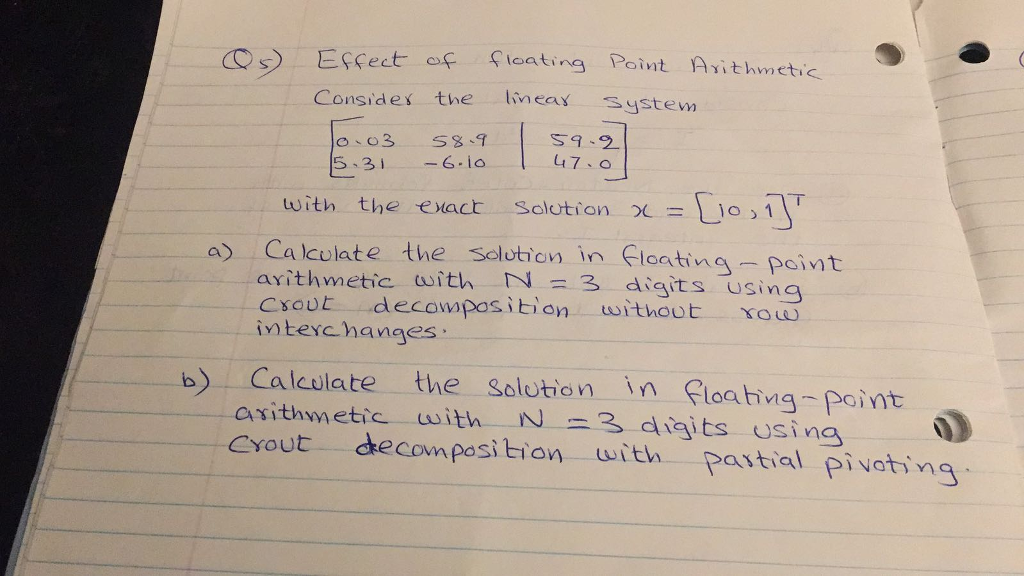 Q5) Effect of floating Point Arithmetic
Consider the linear system
[0.03 58.9 | 59.2]
[5.31 -6.10 | 47.0]
with the exact solution x = [10,1]ᵀ
a) Calculate the solution in floating-point
arithmetic with N = 3 digits using
Crout decomposition without row
interchanges.
b) Calculate the solution in floating-point
arithmetic with N = 3 digits using
Crout decomposition with partial pivoting.